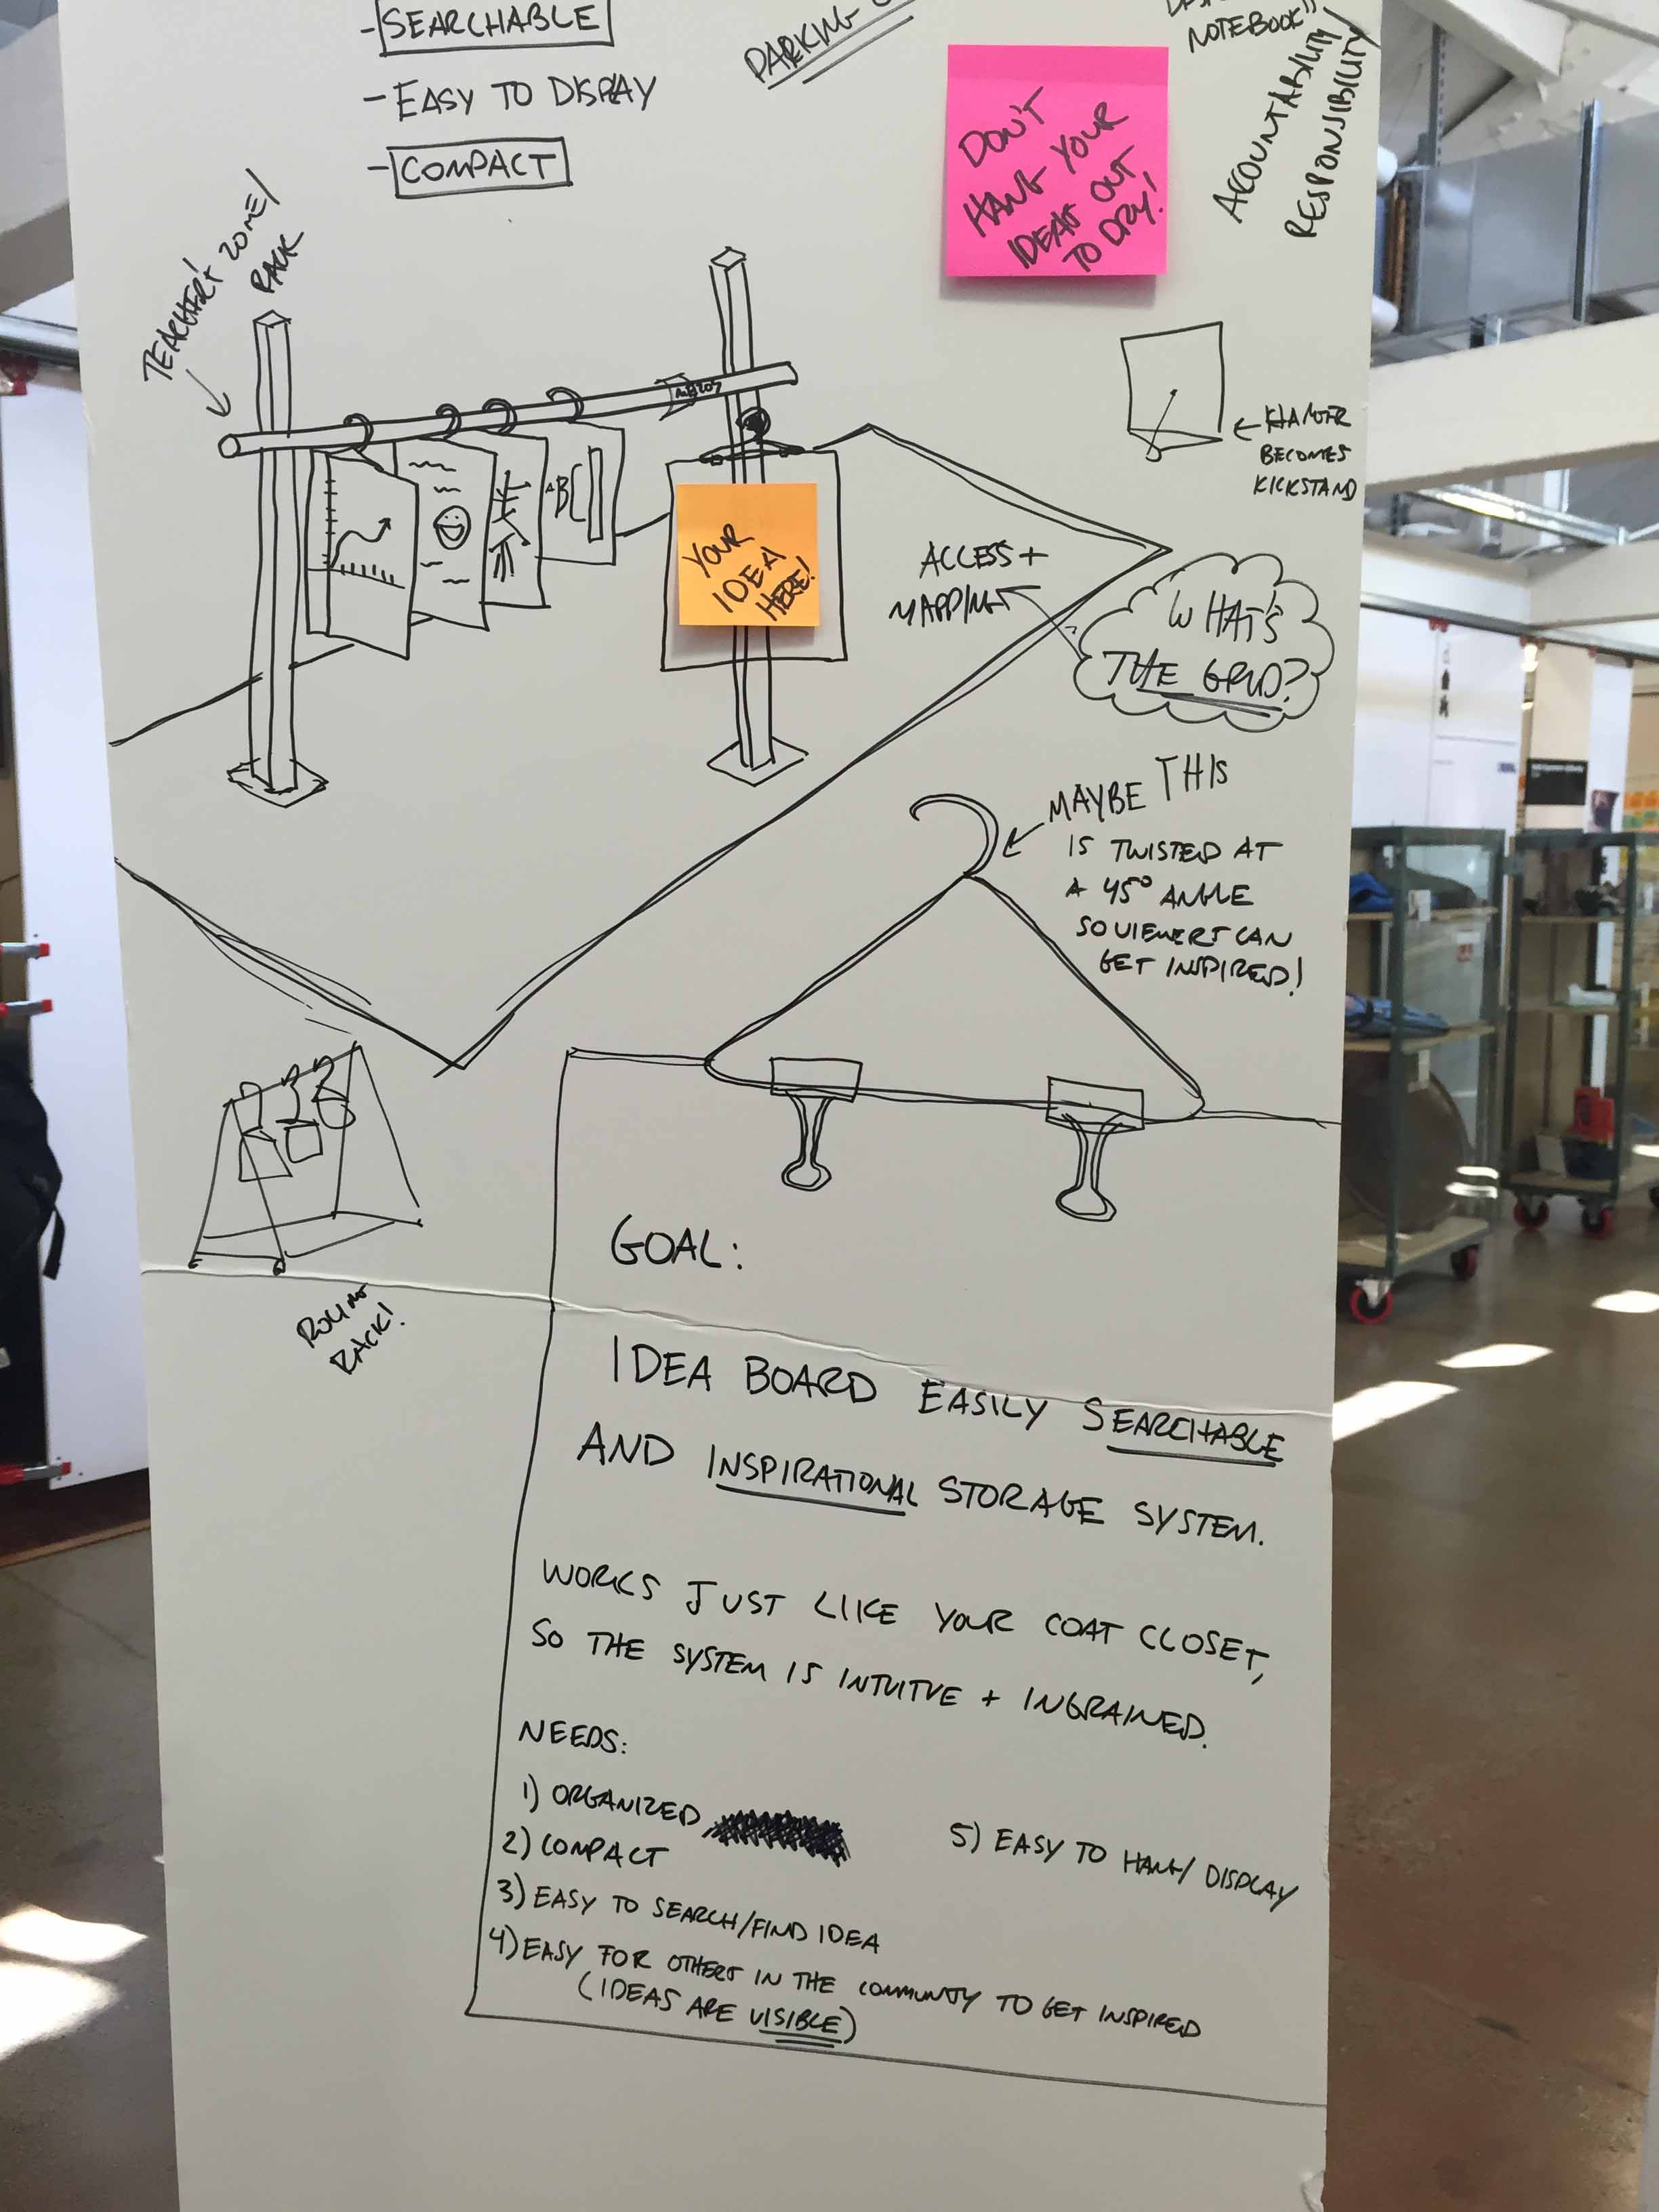 - SEARCHABLE
- EASY TO DISPLAY
- COMPACT
PARKING
NOTEBOOK!!
ACCOUNTABILITY/
RESPONSIBILITY
DON'T
HANG YOUR
IDEAS OUT
TO DRY!
TEACHER'S ZONE/
RACK
ABC
YOUR
IDEA
HERE!
HANGER
BECOMES
KICKSTAND
ACCESS +
MAPPING
WHAT'S
THE GRID?
MAYBE THIS
IS TWISTED AT
A 45° ANGLE
SO VIEWERS CAN
GET INSPIRED!
ROLLING
RACK!
GOAL:
IDEA BOARD EASILY SEARCHABLE
AND INSPIRATIONAL STORAGE SYSTEM.
WORKS JUST LIKE YOUR COAT CLOSET,
SO THE SYSTEM IS INTUITVE + INGRAINED.
NEEDS:
1) ORGANIZED
2) COMPACT
3) EASY TO SEARCH/FIND IDEA
4) EASY FOR OTHERS IN THE COMMUNITY TO GET INSPIRED
(IDEAS ARE VISIBLE)
5) EASY TO HANG/DISPLAY